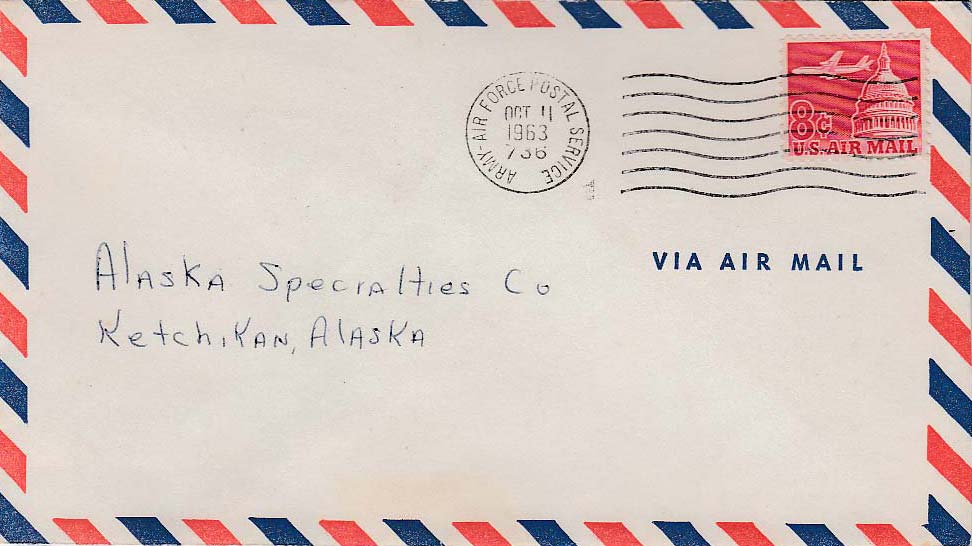 ARMY-AIR FORCE POSTAL SERVICE
OCT 11
1963
736
8¢
U.S. AIR MAIL
VIA AIR MAIL
Alaska Specialties Co
Ketchikan, Alaska